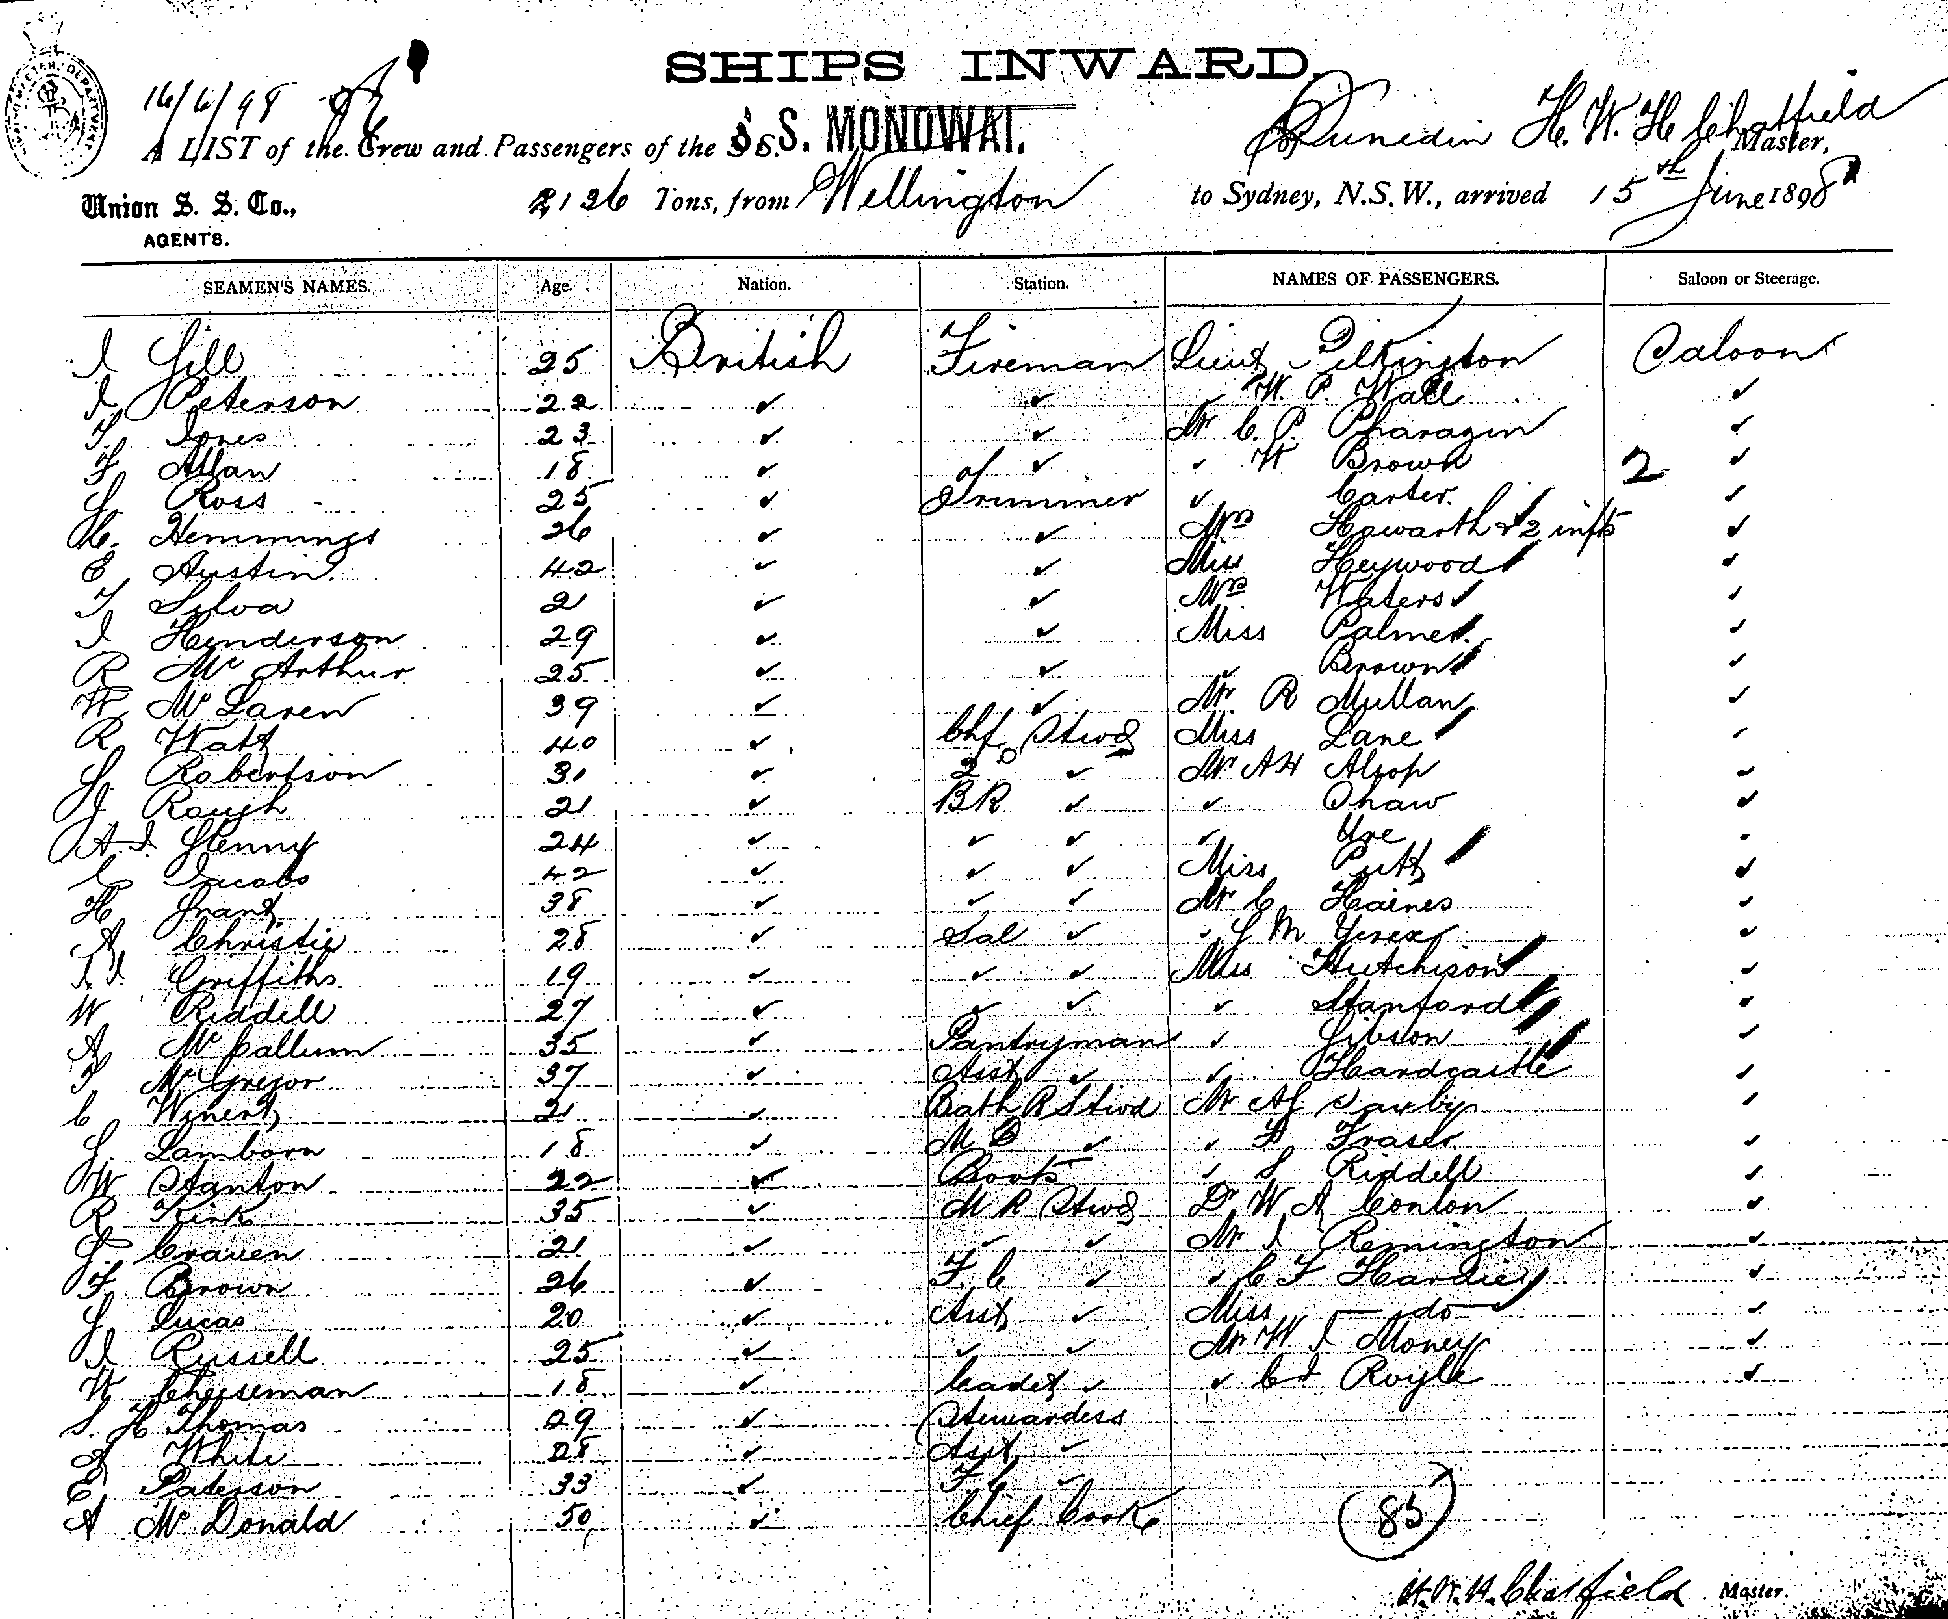 SHIPS INWARD.
16/6/98
A LIST of the Crew and Passengers of the S.S. S. S. MONOWAI. Dunedin H. W. H. Chatfield Master,
Union S. S. Co., AGENTS. 2126 Tons, from Wellington to Sydney, N.S.W., arrived 15th June 1898
SEAMEN'S NAMES. Age. Nation. Station. NAMES OF PASSENGERS. Saloon or Steerage.
J Gill 25 British Fireman Lieut Pilkington Saloon
J Peterson 22 ✓ ✓ ✓ W. P. Wall ✓
T. Jones 23 ✓ ✓ Mr C. P. Pharazyn ✓
F Allan 18 ✓ ✓ ✓ W Brown 2 ✓
G Ross 25 ✓ Trimmer ✓ Carter ✓
H. Hemmings 26 ✓ ✓ Mrs Hawarth & 2 infts ✓
E Austin 42 ✓ ✓ Miss Heywood ✓
T Silva 21 ✓ ✓ Mrs Waters ✓
J Henderson 29 ✓ ✓ Miss Palmer ✓
R McArthur 25 ✓ ✓ ✓ Brown ✓
W McLaren 39 ✓ ✓ Mr R Mullan ✓
R Watt 40 ✓ Chf Stwd Miss Lane ✓
G Robertson 31 ✓ 2 ✓ Mr AH Alsop ✓
J Rough 21 ✓ BR ✓ ✓ Shaw ✓
A J. Glenny 24 ✓ ✓ ✓ ✓ Ure
C Jacobs 42 ✓ ✓ ✓ Miss Putt ✓
H Grant 38 ✓ ✓ ✓ Mr C Haines ✓
A Christie 28 ✓ Sal ✓ ✓ G M Yerex ✓
J. J. Griffiths 19 ✓ ✓ ✓ Miss Hutchison ✓
W Riddell 27 ✓ ✓ ✓ ✓ Stanford ✓
A McCallum 35 ✓ Pantryman ✓ Gibson ✓
T McGregor 37 ✓ Asst ✓ ✓ Hardcastle ✓
C 21 ✓ Bath R Stwd Mr Saxby ✓
G. Lamborn 18 ✓ M ✓ ✓ Fraser ✓
W Stanton 22 ✓ Boots ✓ Riddell ✓
R Kirk 35 ✓ M R Stwd Dr W A Conlon ✓
G Craven 21 ✓ ✓ ✓ Mr J Remington ✓
F Brown 26 ✓ F. C ✓ ✓ C F Hardie ✓
G Lucas 20 ✓ Asst ✓ Miss do ✓
J Russell 25 ✓ ✓ ✓ Mr W J Money ✓
W Cheeseman 18 ✓ Cadet ✓ ✓ C J Royle ✓
S. H Thomas 29 ✓ Stewardess
A White 28 ✓ Asst ✓
E Paterson 33 ✓ F. C ✓
A McDonald 50 ✓ Chief Cook
(83)
H. W. H. Chatfield Master.